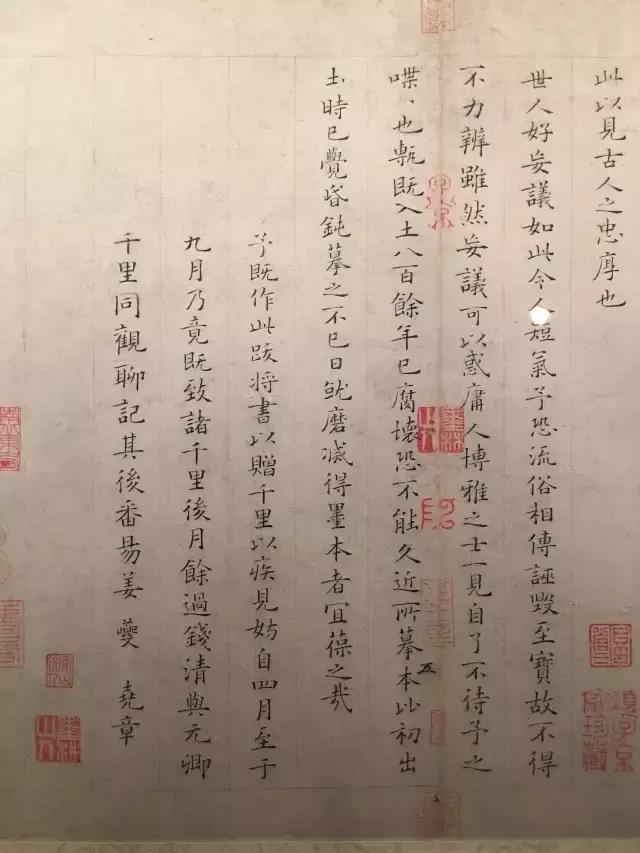 此以見古人之忠厚也
世人好妄議如此令人短氣予恐流俗相傳誣毀至寶故不得
不力辨雖然妄議可以惑庸人博雅之士一見自了不待予之
喋、也甎既入土八百餘年已腐壞恐不能久近所摹本比初出
土時已覺昏鈍摹之不已日就磨滅得墨本者宜葆之哉
予既作此跋將書以贈千里以疾見妨自四月至于
九月乃竟既致諸千里後月餘過錢清與元卿
千里同觀聊記其後番昜姜夔 堯章